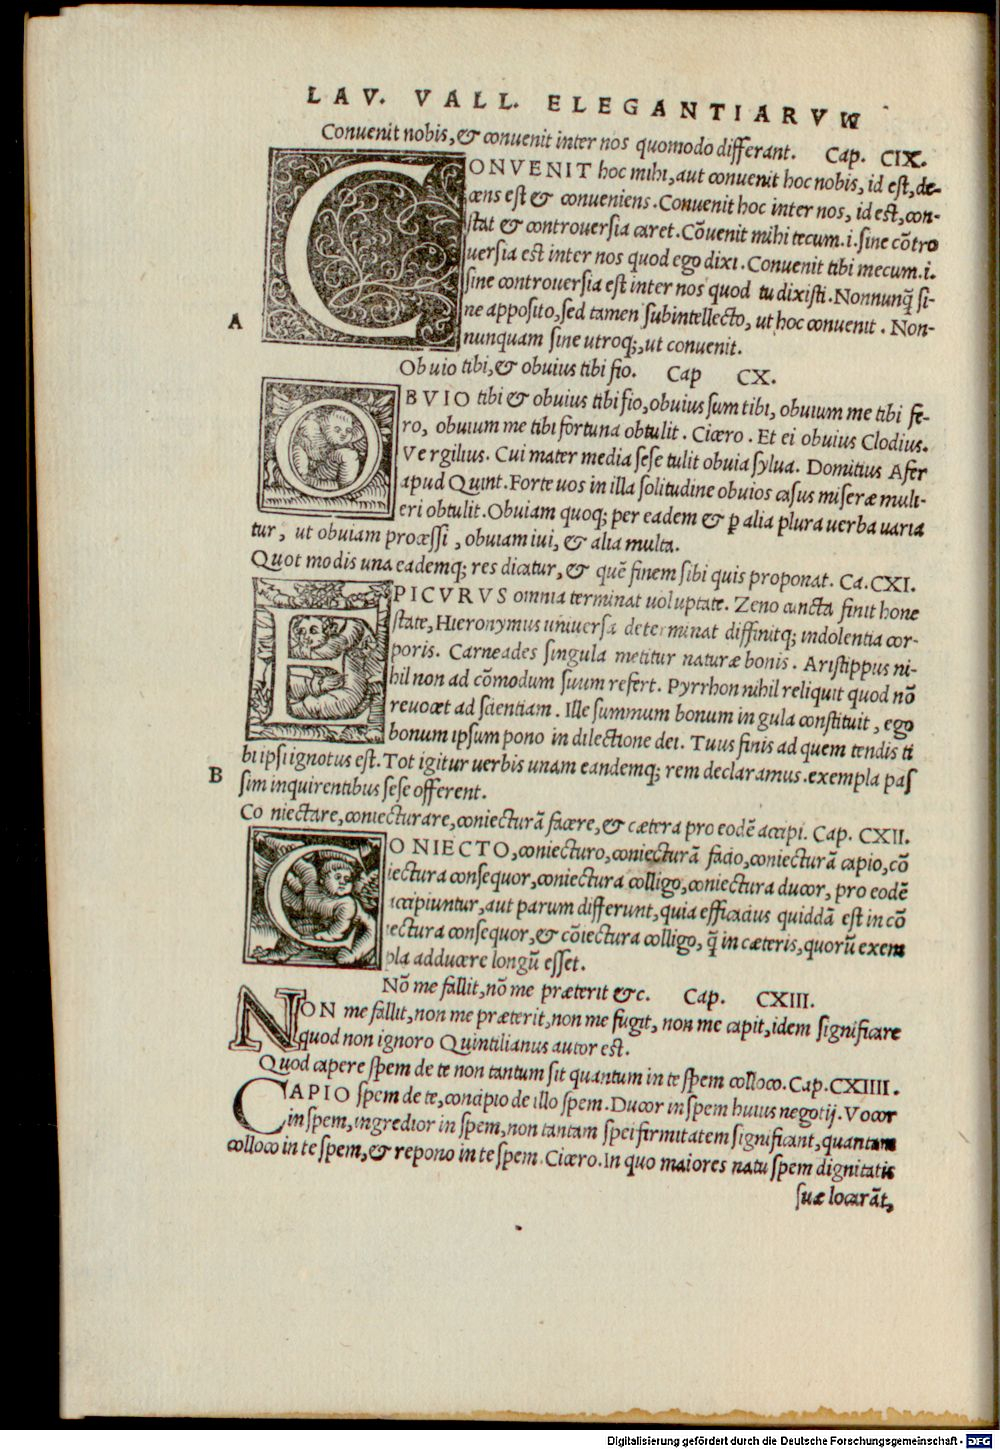 LAV. VALL. ELEGANTIARVM
Conuenit nobis, & conuenit inter nos quomodo differant. Cap. CIX.
CONVENIT hoc mihi, aut conuenit hoc nobis, id est, de-
cens est & conueniens. Conuenit hoc inter nos, id est, con-
stat & controuersia caret. Cõuenit mihi tecum. i. sine cõtro
uersia est inter nos quod ego dixi. Conuenit tibi mecum. i.
sine controuersia est inter nos quod tu dixisti. Nonnunq̃ si-
ne apposito, sed tamen subintellecto, ut hoc conuenit. Non-
A
nunquam sine utroq;, ut conuenit.
Obuio tibi, & obuius tibi fio. Cap CX.
OBVIO tibi & obuius tibi fio, obuius sum tibi, obuium me tibi fe-
ro, obuium me tibi fortuna obtulit. Cicero. Et ei obuius Clodius.
Vergilius. Cui mater media sese tulit obuia sylua. Domitius Afer
apud Quint. Forte uos in illa solitudine obuios casus miseræ muli-
eri obtulit. Obuiam quoq; per eadem & ꝑ alia plura uerba uaria
tur, ut obuiam processi, obuiam iui, & alia multa.
Quot modis una eademq; res dicatur, & quẽ finem sibi quis proponat. Ca. CXI.
EPICVRVS omnia terminat uoluptate. Zeno cuncta finit hone
state, Hieronymus uniuersa determinat diffinitq; indolentia cor-
poris. Carneades singula metitur naturæ bonis. Aristippus ni-
hil non ad cõmodum suum refert. Pyrrhon nihil reliquit quod nõ
reuocet ad scientiam. Ille summum bonum in gula constituit, ego
bonum ipsum pono in dilectione dei. Tuus finis ad quem tendis ti
bi ipsi ignotus est. Tot igitur uerbis unam eandemq; rem declaramus. exempla pas
B
sim inquirentibus sese offerent.
Co niectare, coniecturare, coniecturã facere, & cætera pro eodẽ accipi. Cap. CXII.
CONIECTO, coniecturo, coniecturã facio, coniecturã capio, cõ
iectura consequor, coniectura colligo, coniectura ducor, pro eodẽ
accipiuntur, aut parum differunt, quia efficacius quiddã est in cõ
iectura consequor, & cõiectura colligo, q̃ in cæteris, quorũ exem
pla adducere longũ esset.
Nõ me fallit, nõ me præterit &c. Cap. CXIII.
NON me fallit, non me præterit, non me fugit, non me capit, idem significare
quod non ignoro Quintilianus autor est.
Quod capere spem de te non tantum sit quantum in te spem colloco. Cap. CXIIII.
CAPIO spem de te, concipio de illo spem. Ducor in spem huius negotij. Vocor
in spem, ingredior in spem, non tantam spei firmitatem significant, quantam
colloco in te spem, & repono in te spem. Cicero. In quo maiores natu spem dignitatis
suæ locarãt,
Digitalisierung gefördert durch die Deutsche Forschungsgemeinschaft - DFG